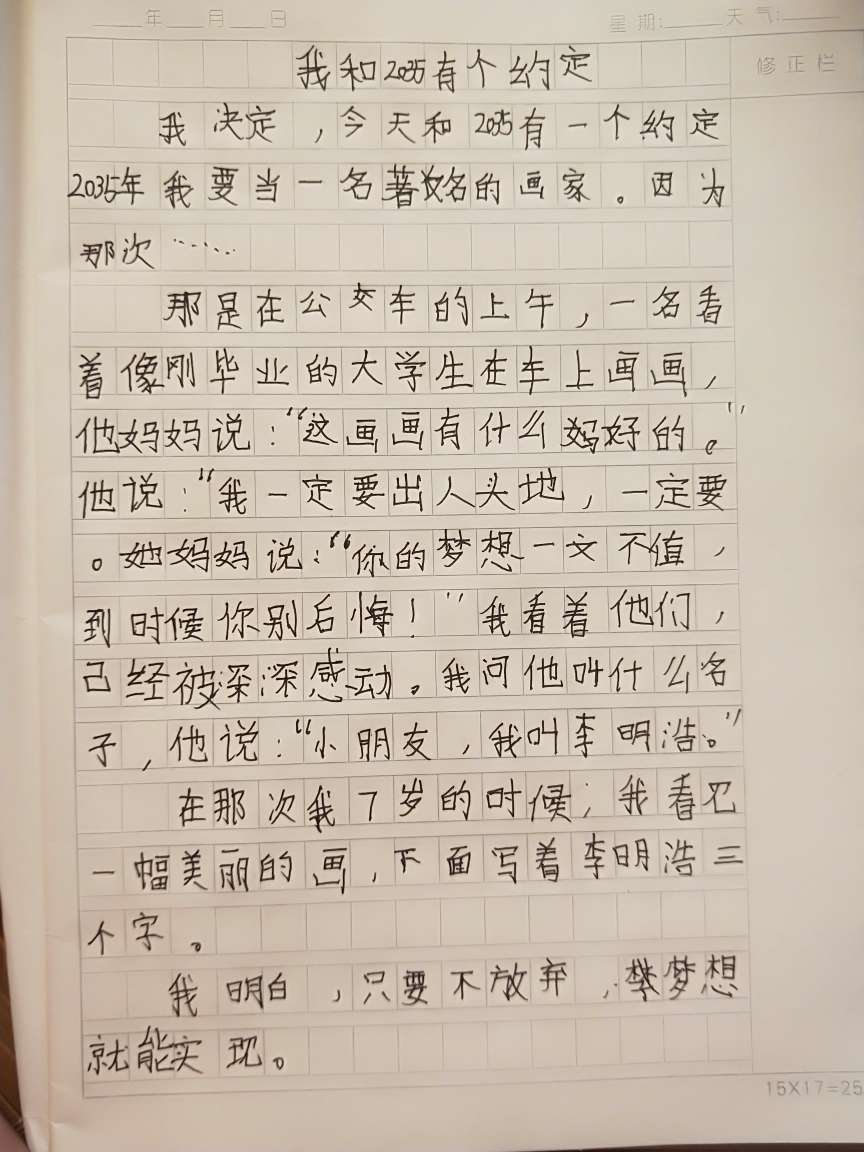 年 月 日 星期: 天气:
修正栏
我和2035有个约定
我决定，今天和2035有一个约定
2035年我要当一名著名的画家。因为
那次……
那是在公交车的上午，一名看
着像刚毕业的大学生在车上画画，
他妈妈说：“这画画有什么好的。”
他说：“我一定要出人头地，一定要
。她妈妈说：“你的梦想一文不值，
到时候你别后悔！”我看着他们，
己经被深深感动。我问他叫什么名
子，他说：“小朋友，我叫李明浩。”
在那次我7岁的时候；我看见
一幅美丽的画，下面写着李明浩三
个字。
我明白，只要不放弃，梦想
就能实现。
15X17=25